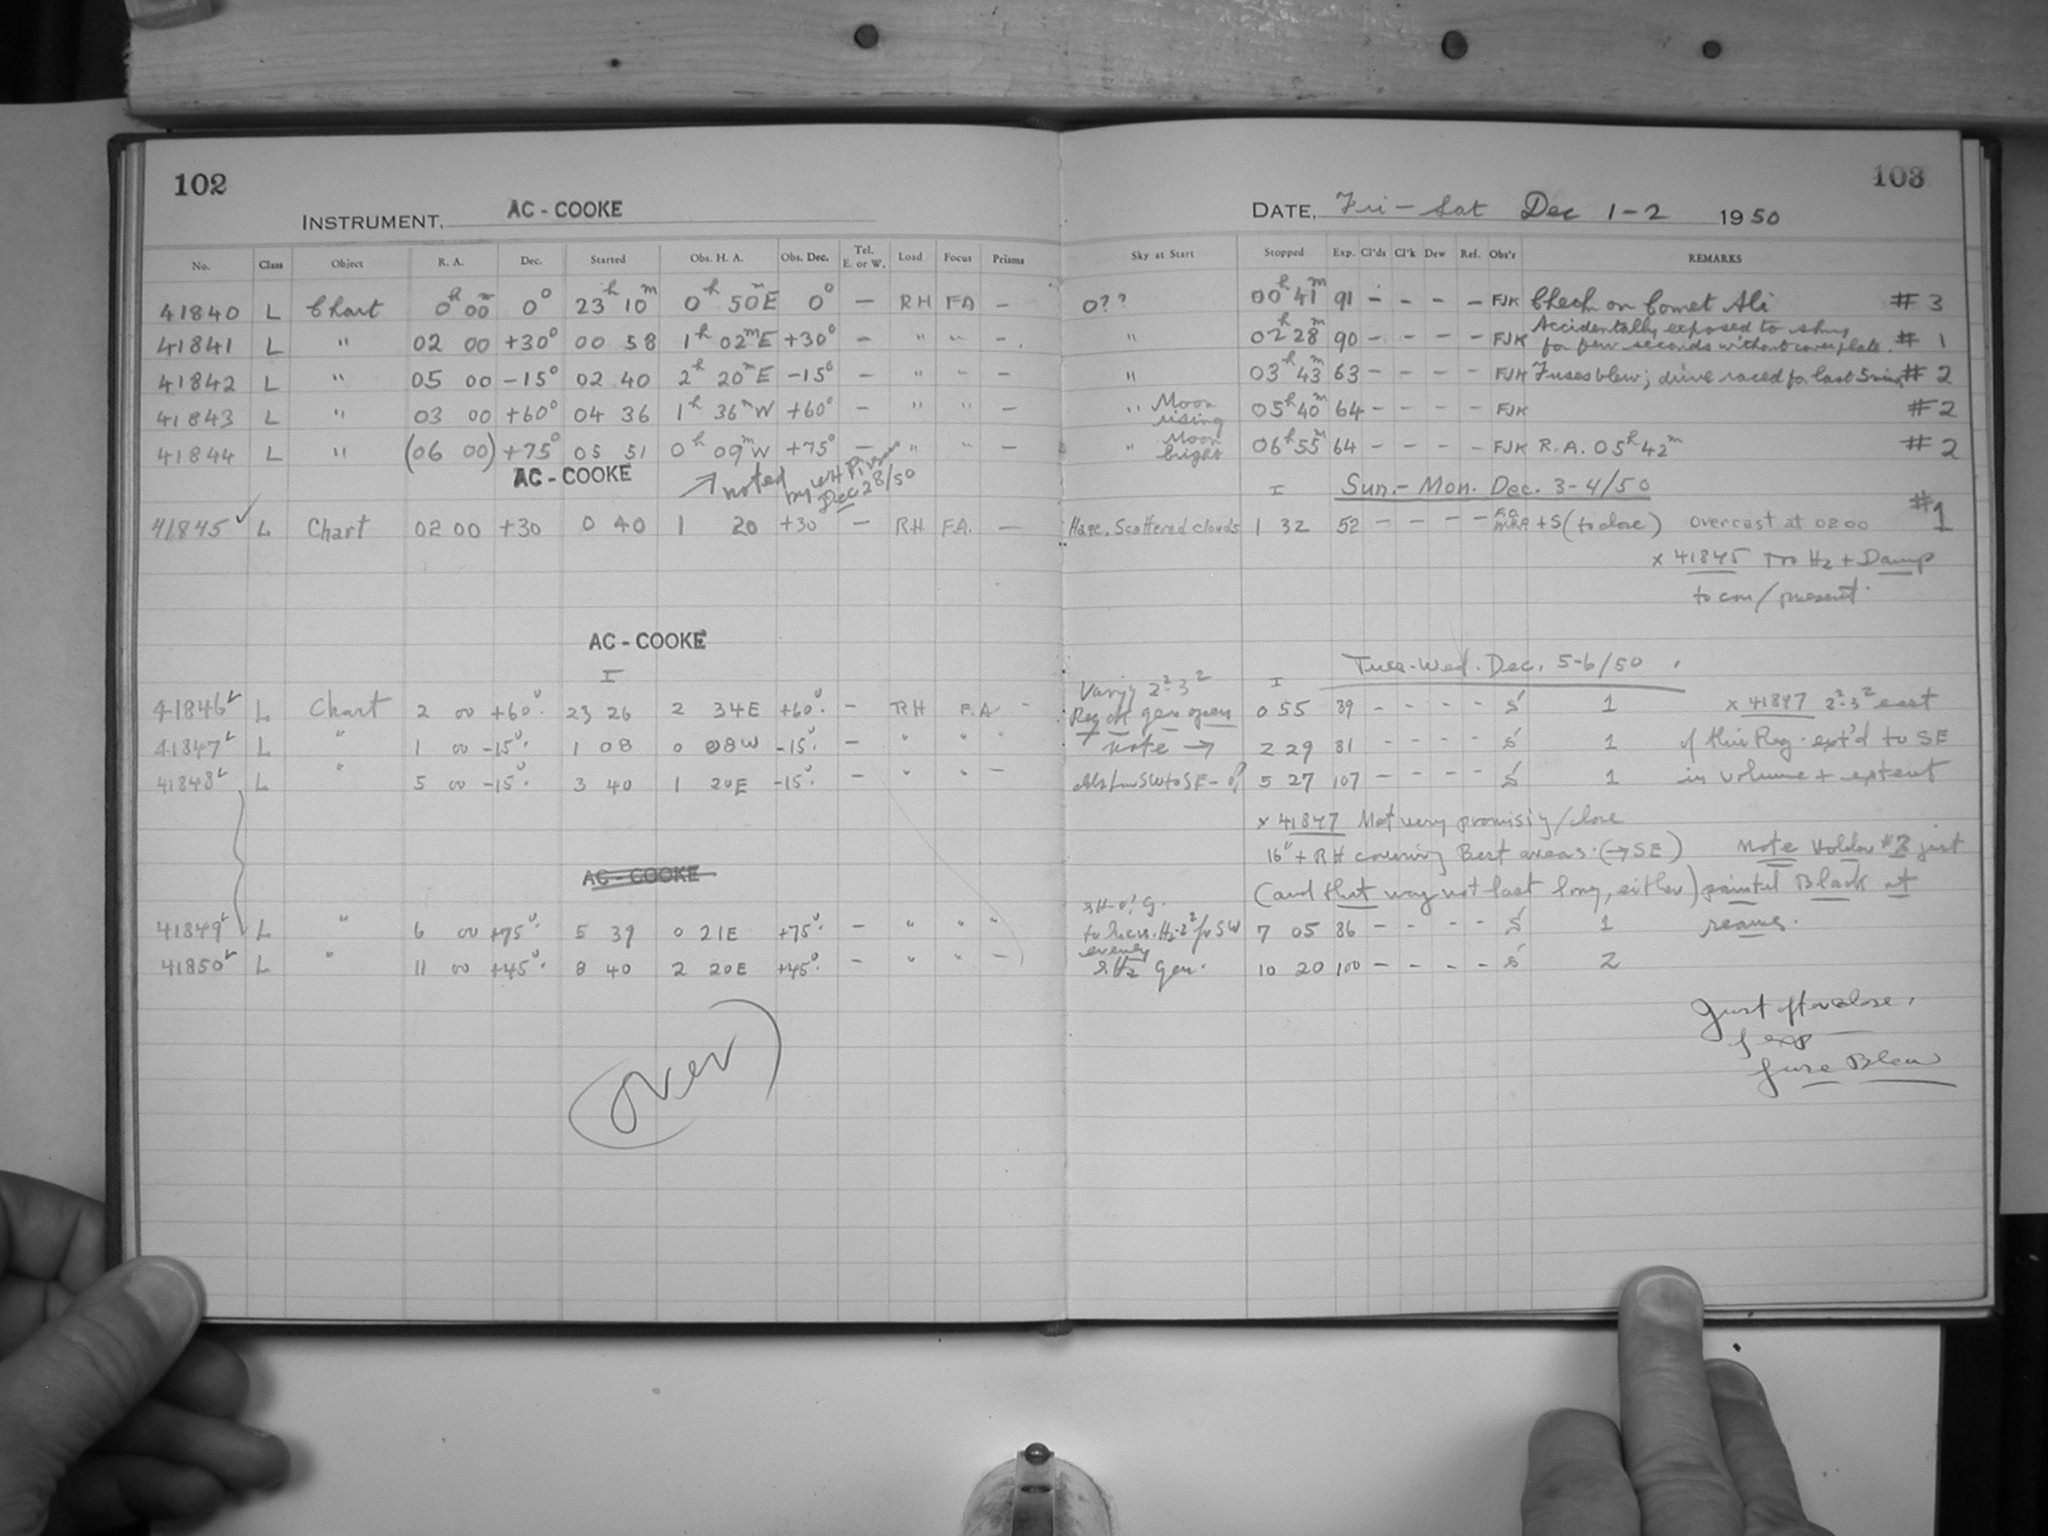 102
INSTRUMENT. AC - COOKE
No. Class Object R. A. Dec. Started Obs. H. A. Obs. Dec. Tel. E. or W. Load Focus Prisms
41840 L Chart 0h 00m 0° 23h 10m 0h 50mE 0° — RH FA —
41841 L " 02 00 +30° 00 58 1h 02mE +30° — " " —
41842 L " 05 00 -15° 02 40 2h 20mE -15° — " " —
41843 L " 03 00 +60° 04 36 1h 36mW +60° — " " —
41844 L " (06 00) +75° 05 51 0h 09mW +75° — " " —
AC - COOKE
noted by
Dec 28/50
41845 ✓ L Chart 02 00 +30 0 40 1 20 +30 — RH FA. —
AC - COOKE
I
41846 L Chart 2 00 +60°. 23 26 2 34E +60°. — RH F.A —
41847 L " 1 00 -15°. 1 08 0 08W -15°. — " " "
41848 L " 5 00 -15°. 3 40 1 20E -15°. — " " —
AC - COOKE
41849 L " 6 00 +75°. 5 39 0 21E +75°. — " " "
41850 L " 11 00 +45°. 8 40 2 20E +45°. — " " —
over
103
DATE, Fri - Sat Dec 1-2 1950
Sky at Start Stopped Exp. Cl'ds Cl'k Dew Ref. Obs'r REMARKS
0?? 00h 41m 91 - - - - FJK Check on Comet Ali #3
" 02h 28m 90 - - - - FJK Accidentally exposed to sky
for few seconds without cover plate. #1
" 03h 43m 63 - - - - FJK Fuses blew; drive raced for last 5 min. #2
" Moon rising 05h 40m 64 - - - - FJK #2
" Moon bright 06h 55m 64 - - - - FJK R.A. 05h 42m #2
I Sun.- Mon. Dec. 3-4/50
Haze. Scattered clouds 1 32 52 - - - - +S (to close) overcast at 0200 #1
x 41845 Too Hz + Damp
to con/present.
Tues-Wed. Dec. 5-6/50
I
Varyg 2²-3²
gen open 0 55 89 - - - - S 1 x 41847 2²-3² east
note → 2 29 81 - - - - S 1 of this Reg. ext'd to SE
SW to SE 5 27 107 - - - - S 1 in volume + extent
x 41847 Not very promisig/close
16" + RH covering Best areas. (→ SE) Note Holder #3 just
(and that may not last long, either) painted Black at
7 05 86 - - - - S 1
evenly
Hz Gen. 10 20 100 - - - - S 2
Just after close,
fuse Blew